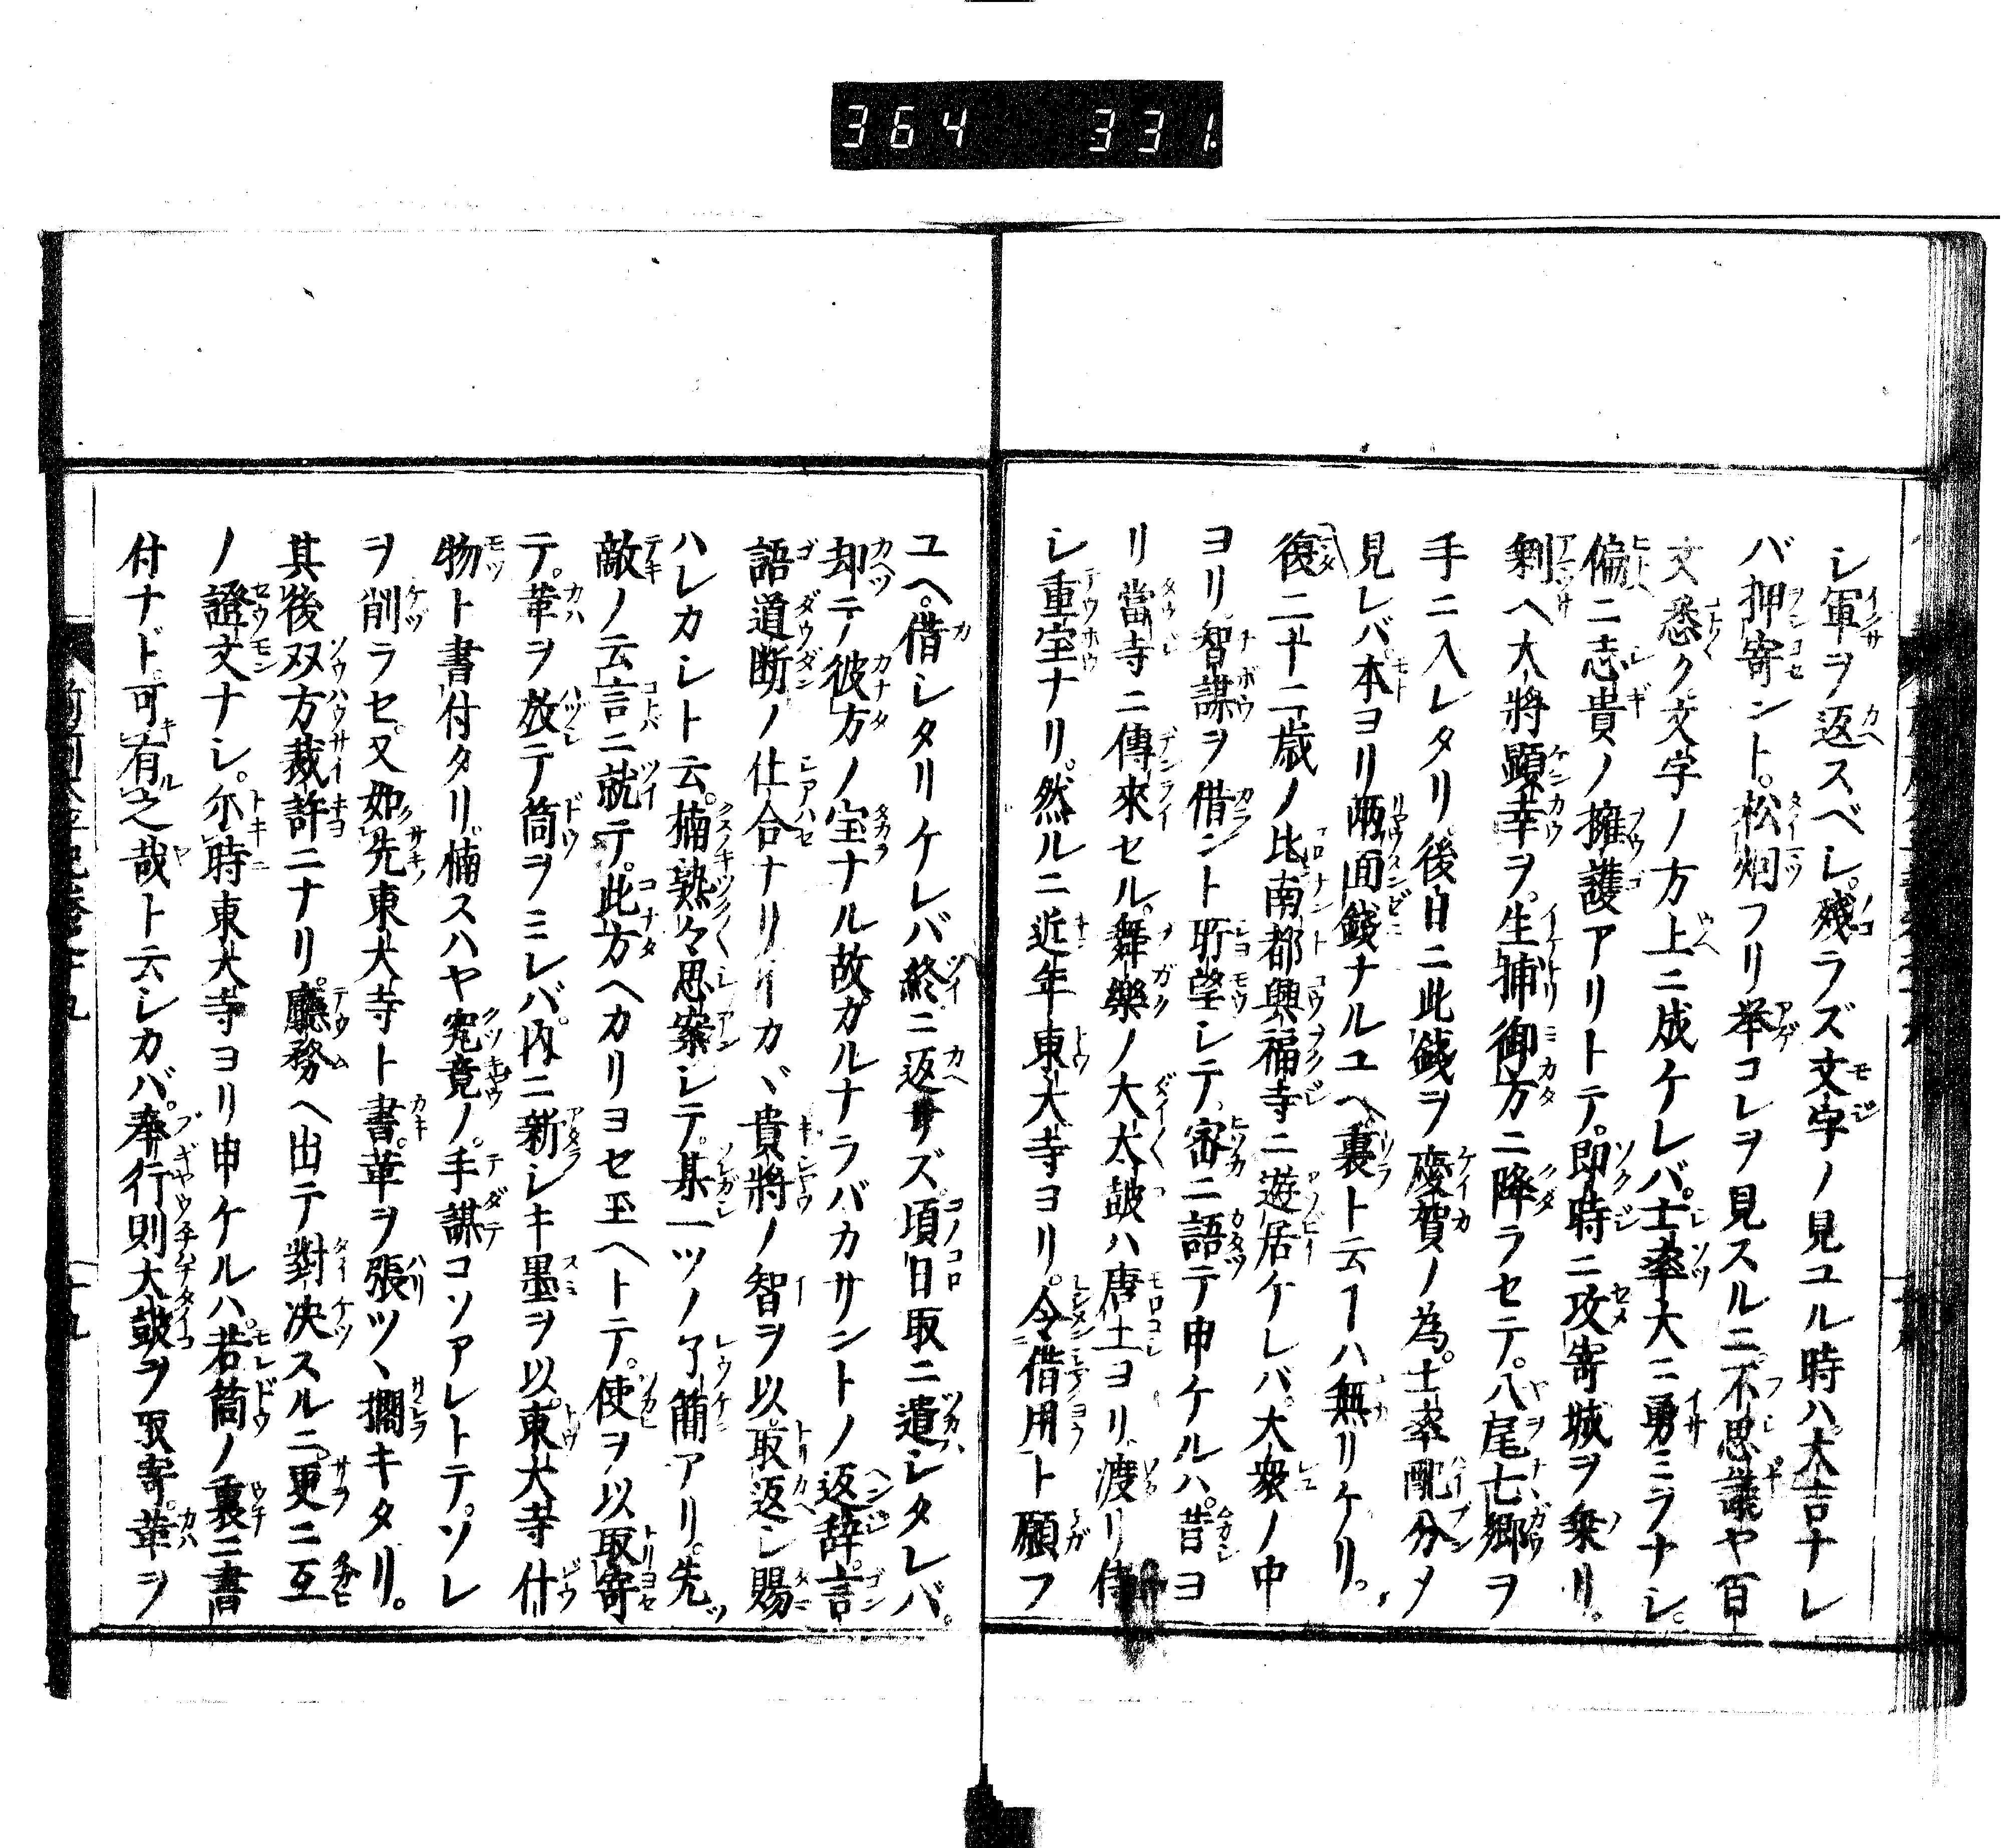 364 331.
シ軍ヲ返スベシ。残ラズ文字ノ見ユル時ハ。大吉ナレ
バ押寄ント。松烟フリ挙コレヲ見スルニ。不思議ヤ百
文悉ク文字ノ方上ニ成ケレバ。士卒大ニ勇ミヲナシ。
偏ニ志貴ノ擁護アリトテ。即時ニ攻寄城ヲ乗リ。
剰ヘ大将顕幸ヲ。生捕御方ニ降ラセテ。八尾七郷ヲ
手ニ入レタリ。後日ニ此銭ヲ慶賀ノ為。士卒配分メ
見レバ。本ヨリ両面銭ナルユヘ。裏ト云ヿハ無リケリ。
復二十二歳ノ比南都興福寺ニ遊居ケレバ。大衆ノ中
ヨリ。智謀ヲ借ント所望シテ。密ニ語テ申ケルハ。昔ヨ
リ當寺ニ傳來セル。舞樂ノ大太鼓ハ唐土ヨリ。渡リ侍
シ重宝ナリ。然ルニ近年東大寺ヨリ。令借用ト願フ
ユヘ。借シタリケレバ終ニ返サズ。頃日取ニ遣シタレバ。
却テノ彼方ノ宝ナル故。カルナラバカサントノ返辞。言
語道断ノ仕合ナリ。イカヾ貴將ノ智ヲ以取返シ賜
ハレカシト云。楠熟々思案シテ。某一ツノ了簡アリ。先
敵ノ云言ニ就テ。此方ヘカリヨセ玉ヘトテ。使ヲ以取寄
テ。革ヲ放テ筒ヲミレバ。内ニ新シキ墨ヲ以。東大寺什
物ト書付タリ。楠スハヤ究竟ノ。手謀コソアレトテ。ソレ
ヲ削ラセ。又如先東大寺ト書。革ヲ張ツヽ擱キタリ。
其後双方裁許ニナリ。廳務ヘ出テ對决スルニ。更ニ互
ノ證文ナシ。尓時東大寺ヨリ申ケルハ。若筒ノ裏ニ書
付ナド。可有之哉ト云シカバ。奉行則大鼓ヲ取寄。革ヲ